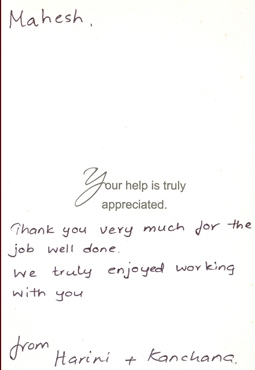 Mahesh.
Your help is truly
appreciated.
Thank you very much for the
job well done.
We truly enjoyed working
with you
from
Harini + Kanchana.